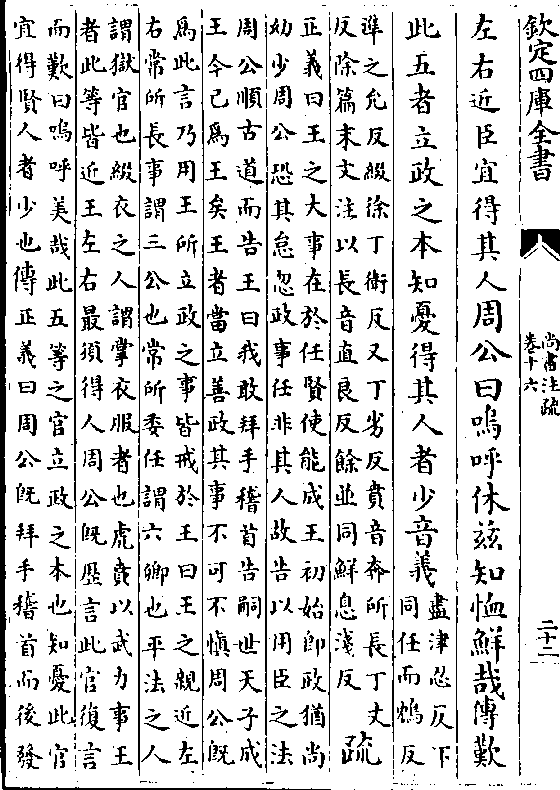 欽定四庫全書
尚書注疏
卷十六
二十二
左右近臣宜得其人周公曰嗚呼休茲知恤鮮哉傳歎
此五者立政之本知憂得其人者少音義
盡津忍反下
同任而鴆反
準之允反綴徐丁衛反又丁劣反賁音奔所長丁丈
反除篇末文注以長音直良反餘並同鮮息淺反
疏
正義曰王之大事在於任賢使能成王初始即政猶尚
幼少周公恐其怠忽政事任非其人故告以用臣之法
周公順古道而告王曰我敢拜手稽首告嗣世天子成
王今已為王矣王者當立善政其事不可不慎周公既
為此言乃用王所立政之事皆戒於王曰王之親近左
右常所長事謂三公也常所委任謂六卿也平法之人
謂獄官也綴衣之人謂掌衣服者也虎賁以武力事王
者此等皆近王左右最須得人周公既歷言此官復言
而歎曰嗚呼美哉此五等之官立政之本也知憂此官
宜得賢人者少也傳正義曰周公既拜手稽首而後發